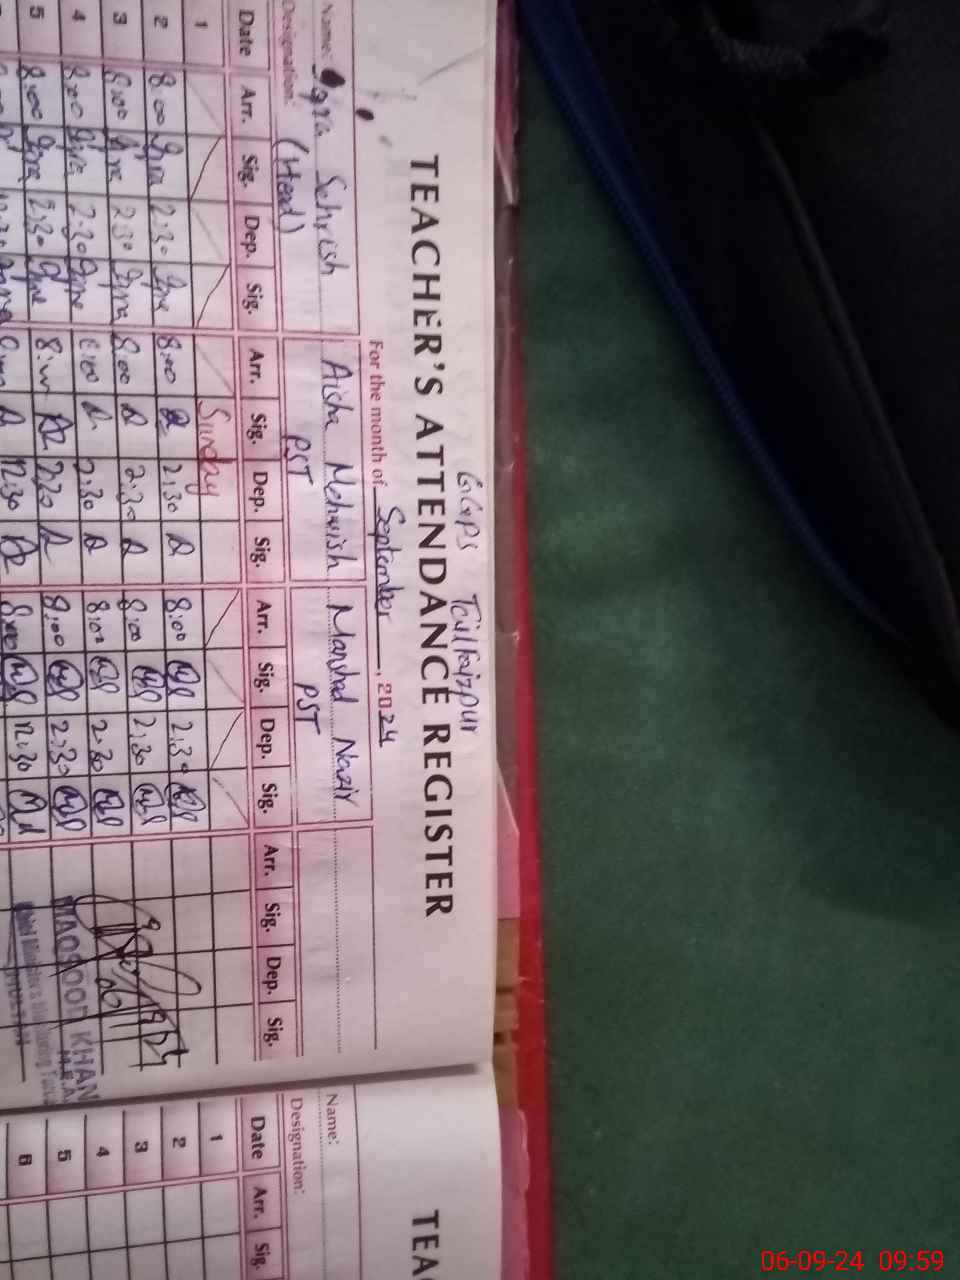 GGPS Tailfaizpur
TEACHER'S ATTENDANCE REGISTER
For the month of September, 2024
Name: Iqra Sehrish Aisha Mehwish Manshad Nazir
Designation: (Head) PST PST
Date Arr. Sig. Dep. Sig. Arr. Sig. Dep. Sig. Arr. Sig. Dep. Sig. Arr. Sig. Dep. Sig.
1 Sunday
2 8:00 Iqra 2:30 Iqra 8:00 2:30 8:00 2:30
3 8:00 Iqra 2:30 Iqra 8:00 2:30 8:00 2:30
4 8:00 Iqra 2:30 Iqra 8:00 2:30 8:00 2:30
5 8:00 Iqra 2:30 Iqra 8:00 2:30 8:00 2:30
12:30 8:00 12:30
MAQSOOD KHAN
M.E.A.
TEA
Name:
Designation:
Date Arr. Sig.
1
2
3
4
5
6
06-09-24 09:59